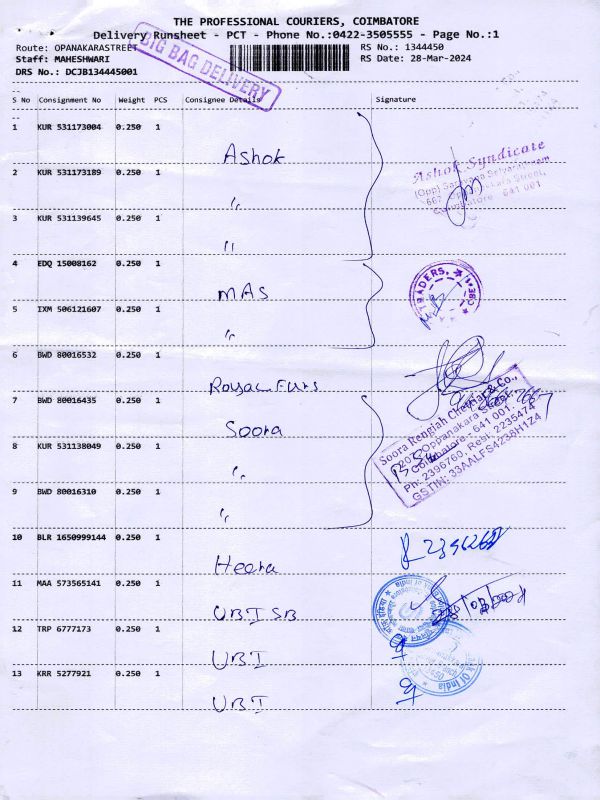 THE PROFESSIONAL COURIERS, COIMBATORE
Delivery Runsheet - PCT - Phone No.:0422-3505555 - Page No.:1
Route: OPANAKARASTREET
RS No.: 1344450
Staff: MAHESHWARI
RS Date: 28-Mar-2024
DRS No.: DCJB134445001
BIG BAG DELIVERY
S No Consignment No Weight PCS Consignee Details Signature
1 KUR 531173004 0.250 1
Ashok
Ashok Syndicate
641 001
2 KUR 531173189 0.250 1
"
3 KUR 531139645 0.250 1
"
4 EDQ 15008162 0.250 1
MAS
TRADERS, CBE
5 IXM 506121607 0.250 1
"
6 BWD 80016532 0.250 1
Royal Furs
7 BWD 80016435 0.250 1
Soora
Soora Rengiah Chettiar & Co.,
Oppanakara Street,
Coimbatore - 641 001.
Ph: 2396760. Resi: 2235474
GSTIN: 33AALFS4238H1Z4
8 KUR 531138049 0.250 1
"
9 BWD 80016310 0.250 1
"
10 BLR 1650999144 0.250 1
Heera
11 MAA 573565141 0.250 1
UBI SB
12 TRP 6777173 0.250 1
UBI
13 KRR 5277921 0.250 1
UBI
of India